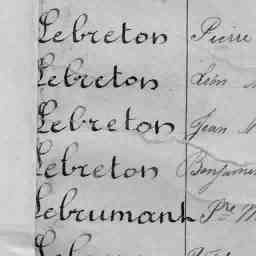 Lebreton Pierre
Lebreton Léon
Lebreton Jean M
Lebreton Benjamin
Lebrumant Pre M